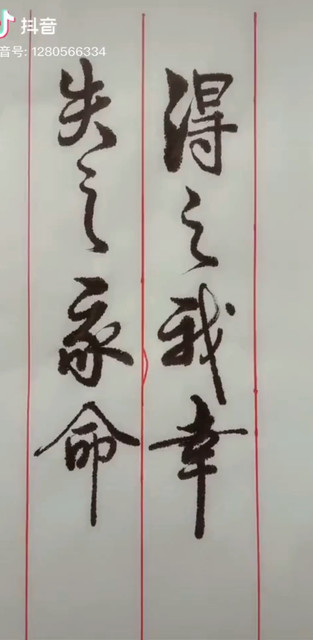 抖音
音号: 1280566334
得之我幸
失之我命